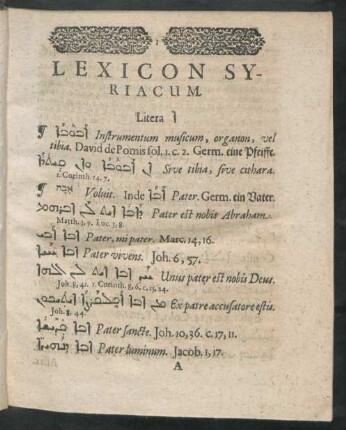 1
LEXICON SY-
RIACUM.
Litera ܐ
¶ Instrumentum musicum, organon, vel
tibia. David de Pomis fol. 1. c. 2. Germ. eine Pfeiffe.
Sive tibia, sive cithara.
1. Corinth. 14. 7.
¶ Voluit. Inde ܐܒܐ Pater. Germ. ein Vater.
Pater est nobis Abraham.
Matth. 3, 9. Luc. 3, 8.
ܐܒܐ Pater, mi pater. Marc. 14, 16.
ܐܒܐ ܚܝܐ Pater vivens. Joh. 6, 57.
Unus pater est nobis Deus.
Joh. 8, 41. 1. Corinth. 8, 6. c. 15, 24.
Ex patre accusatore estis.
Joh. 8. 44.
ܐܒܐ ܩܕܝܫܐ Pater sancte. Joh. 10, 36. c. 17, 11.
ܐܒܐ ܕܢܗܝܪܐ Pater luminum. Jacob. 1, 17.
A